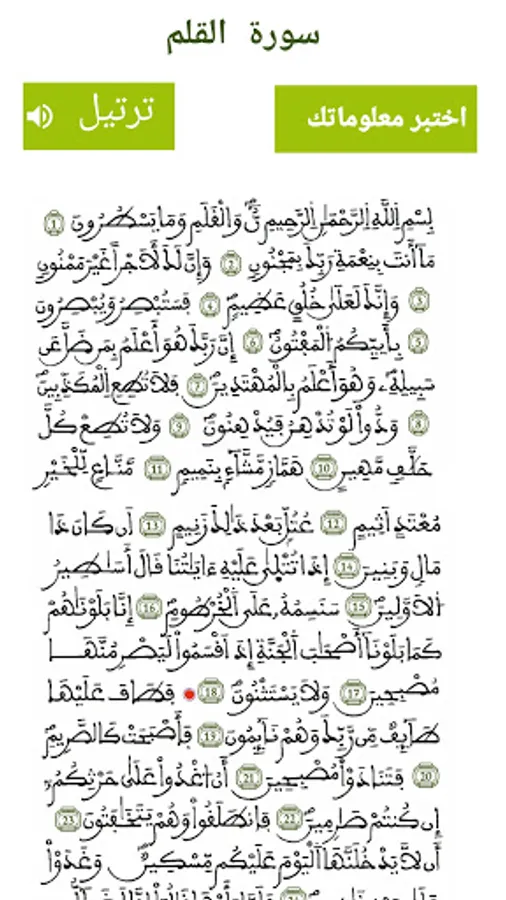 سورة القلم
اختبر معلوماتك
ترتيل
بسم الله الرحمن الرحيم ن والقلم وما يسطرون 1
ما أنت بنعمة ربك بمجنون 2 وإن لك لأجرا غير ممنون
3 وإنك لعلى خلق عظيم 4 فستبصر ويبصرون
5 بأييكم المفتون 6 إن ربك هو أعلم بمن ضل عن
سبيله وهو أعلم بالمهتدين 7 فلا تطع المكذبين
8 ودوا لو تدهن فيدهنون 9 ولا تطع كل
حلاف مهين 10 هماز مشاء بنميم 11 مناع للخير
معتد اثيم 12 عتل بعد ذلك زنيم 13 ان كان ذا
مال وبنين 14 إذا تتلى عليه ءايتنا قال أسطير
الاولين 15 سنسمه على الخرطوم 16 إنا بلونهم
كما بلونا أصحب الجنة إذ اقسموا ليصرمنها
مصبحين 17 ولا يستثنون 18 فطاف عليها
طايف من ربك وهم نايمون 19 فأصبحت كالصريم
20 فتنادوا مصبحين 21 أن اغدوا على حرثكم
إن كنتم صرمين 22 فانطلقوا وهم يتخفتون 23
أن لا يدخلنها اليوم عليكم مسكين وغدوا